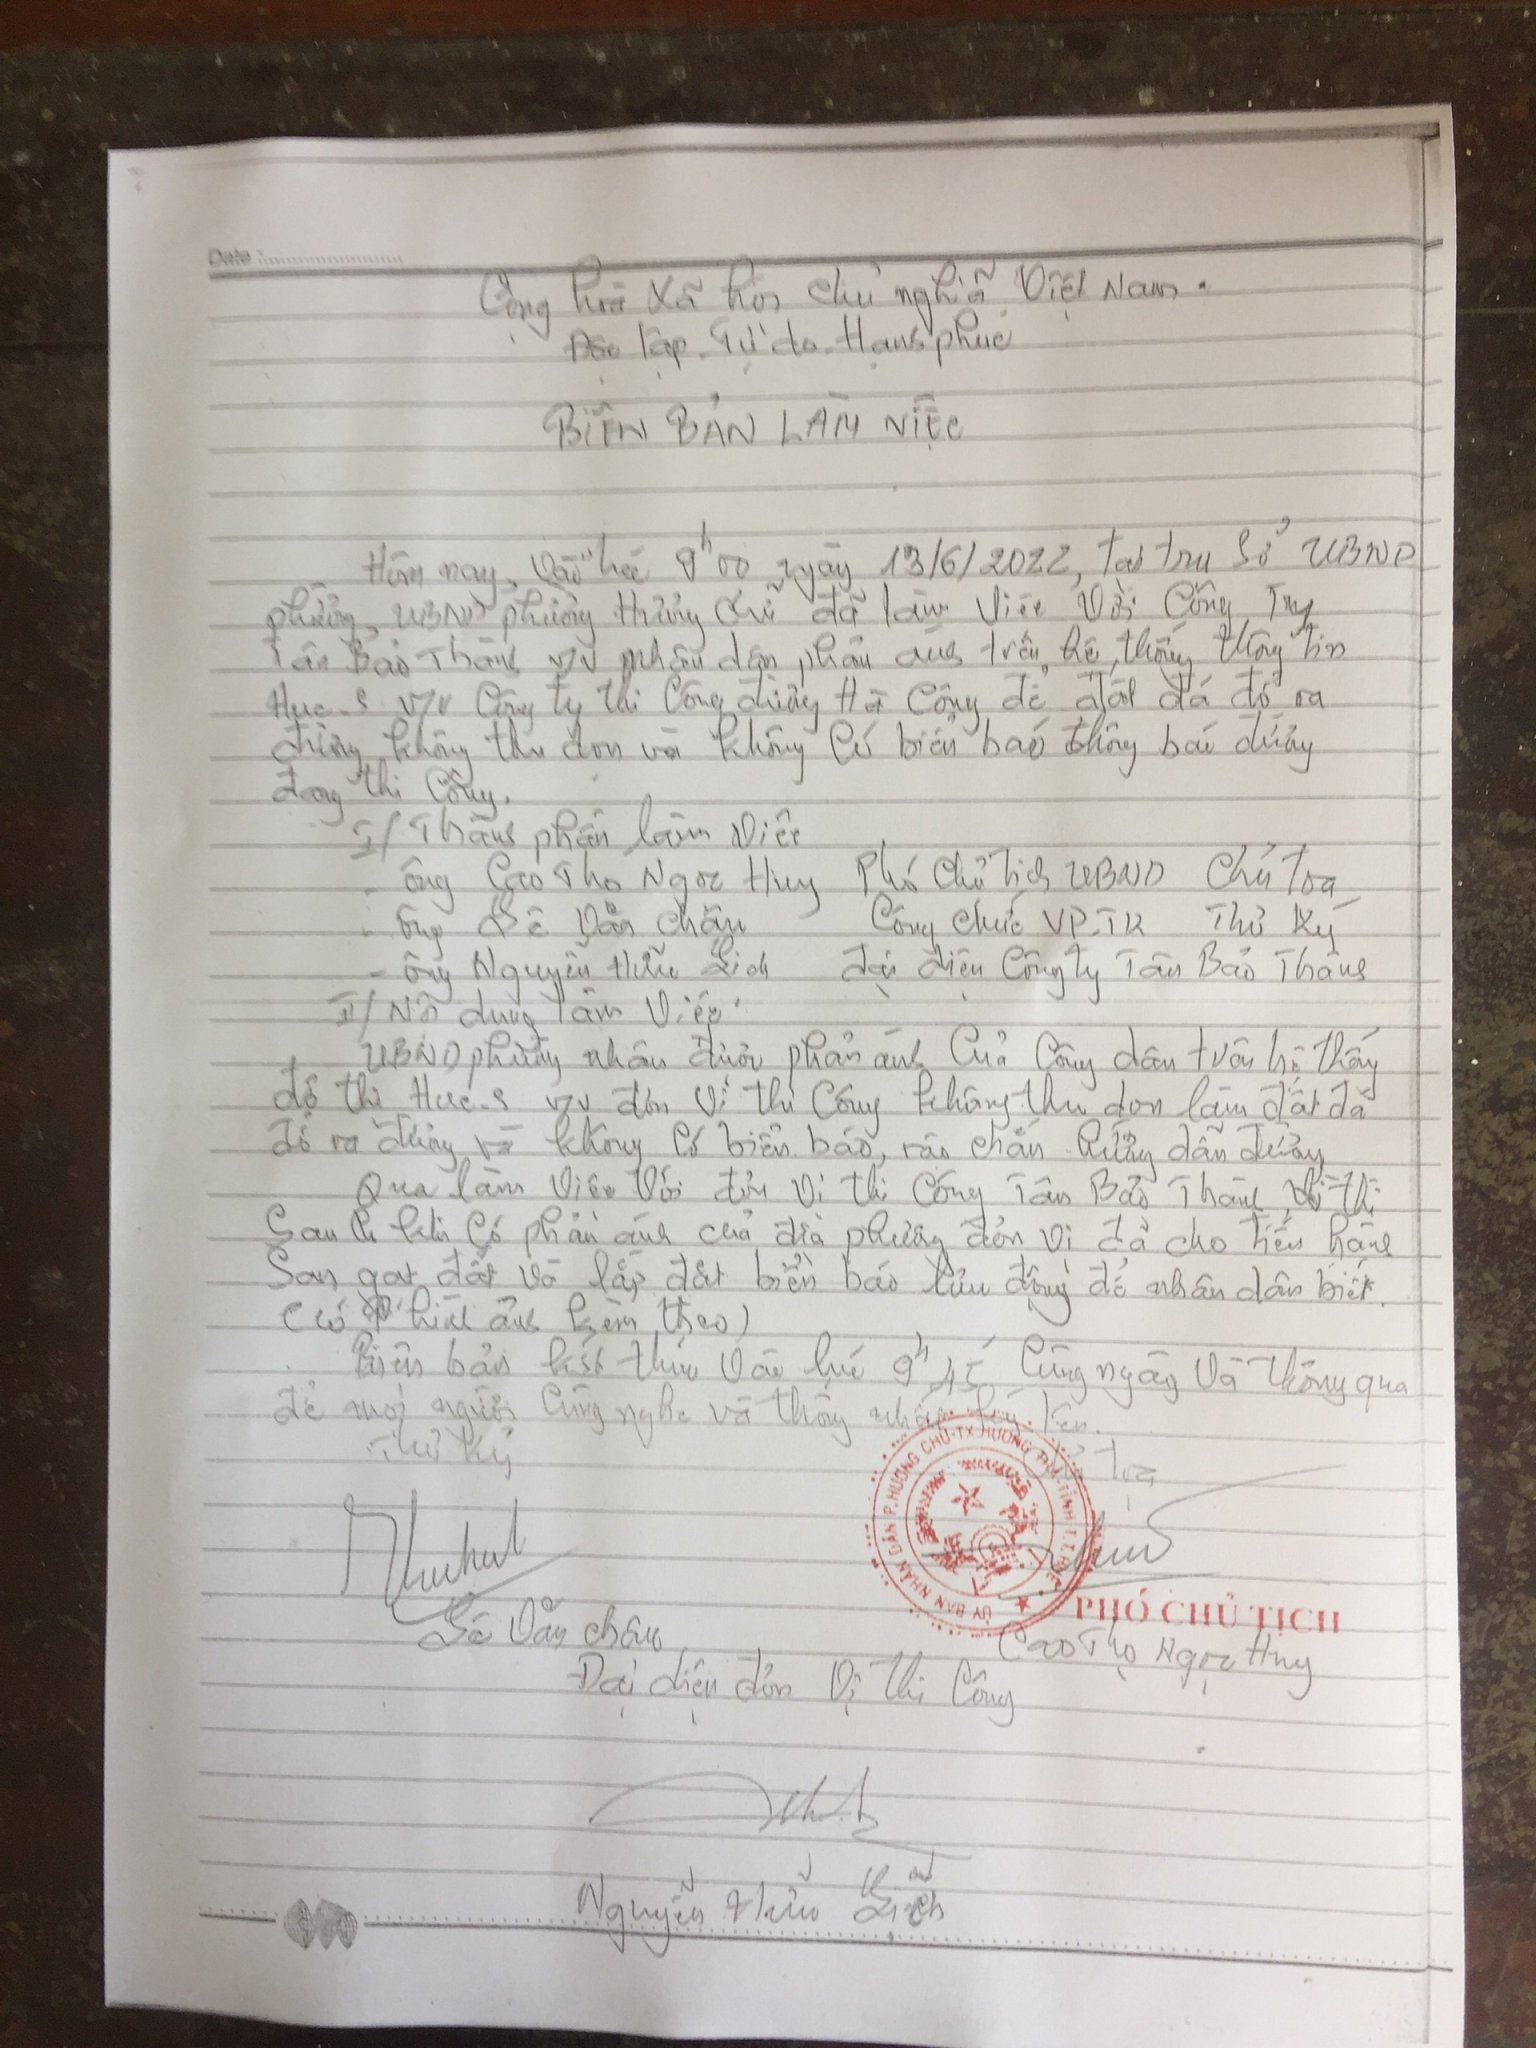 Date :........................
Cộng hoà Xã hội chủ nghĩa Việt Nam.
Độc lập. Tự do. Hạnh phúc
BIÊN BẢN LÀM VIỆC
Hôm nay, vào lúc 9h00 ngày 13/6/2022, tại trụ sở UBND
phường, UBND phường Hương Chữ đã làm việc với Công Ty
Tân Bảo Thành v/v nhân dân phản ánh trên hệ thống thông tin
Hue-S v/v Công ty thi công đường Hà Công để đất đá đổ ra
đường không thu dọn và không có biển báo thông báo đường
đang thi công.
I/ Thành phần làm việc
- ông Cao Thọ Ngọc Huy Phó Chủ tịch UBND Chủ toạ
- ông Lê Văn Châu Công chức VP-TK Thư Ký
- ông Nguyễn Hữu đại diện Công ty Tân Bảo Thành
II/ Nội dung làm việc:
UBND phường nhận được phản ánh của công dân trên hệ thống
đô thị Hue-S v/v đơn vị thi công không thu dọn làm đất đá
đổ ra đường và không có biển báo, rào chắn hướng dẫn đường
Qua làm việc với đơn vị thi công Tân Bảo Thành, thì
Sau khi có phản ánh của địa phương đơn vị đã cho tiến hành
San gạt đất và lắp đặt biển báo lưu động để nhân dân biết.
(có hình ảnh kèm theo)
Biên bản kết thúc vào lúc 9h45 cùng ngày và thông qua
để mọi người cùng nghe và thống nhất ký tên.
Thư Ký Chủ toạ
ỦY BAN NHÂN DÂN P. HƯƠNG CHỮ-TX. HƯƠNG TRÀ-TỈNH T.T.HUẾ
PHÓ CHỦ TỊCH
Lê Văn Châu Cao Thọ Ngọc Huy
Đại diện đơn vị thi công
Nguyễn Hữu